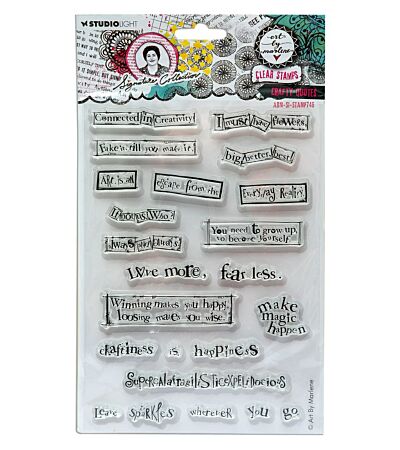 STUDIOLIGHT
Signature Collection
art by marlene
CLEAR STAMPS
CRAFTY QUOTES
ABM-SI-STAMP746
Connected in Creativity!
I must have flowers.
Fake it till you make it.
big better best!
Art is an
escape from the
Everyday Reality
Always and always
You need to grow up,
so become yourself.
Love more, fear less.
Winning makes you happy,
loosing makes you wise.
make
magic
happen
craftiness is happiness
Leave sparkles wherever you go
© Art By Marlene